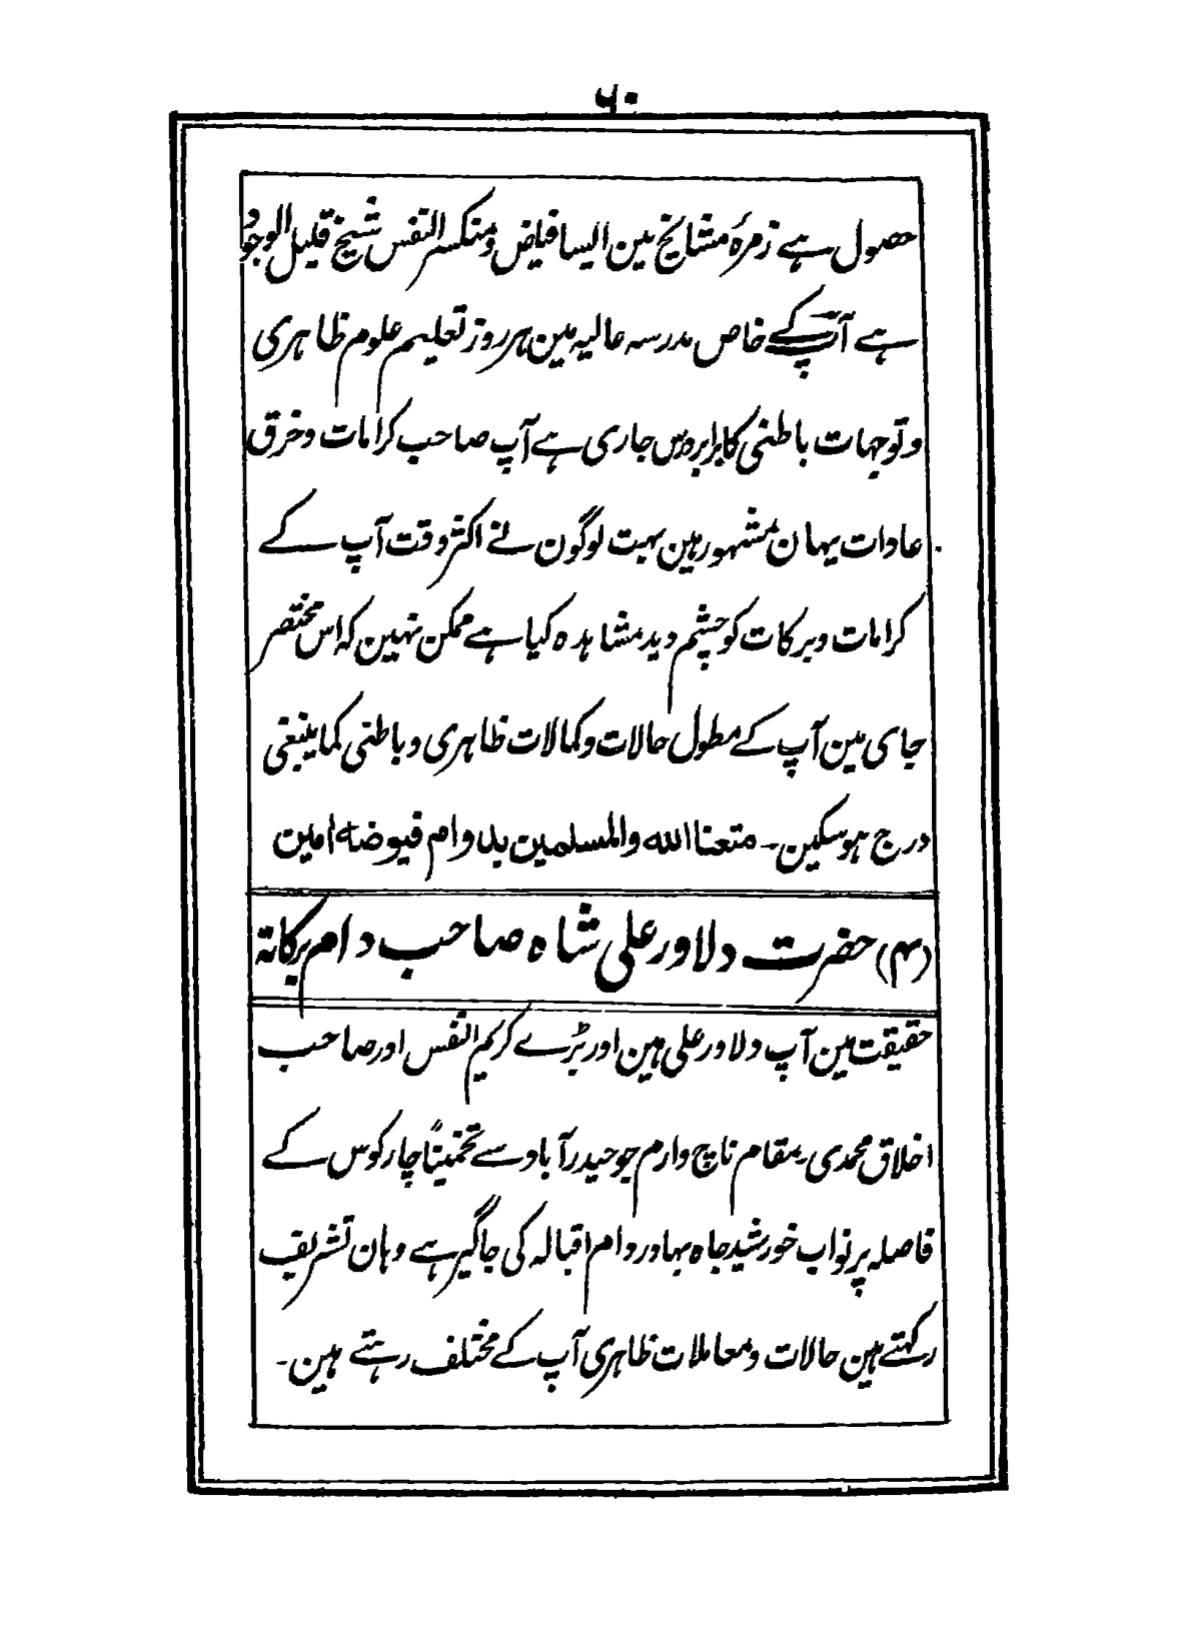 ۶۰
حصول ہے زمرۂ مشایخ مین ایسا فیاض و منکسر النفس شیخ قلیل الوجود
ہے آپ کے خاص مدرسہ عالیہ مین ہر روز تعلیم علوم ظاہری
و توجہات باطنی کا برابر درس جاری ہے آپ صاحب کرامات و خرق
عادات یہان مشہور ہین بہت لوگون نے اکثر وقت آپ کے
کرامات و برکات کو چشم دید مشاہدہ کیا ہے ممکن نہین کہ اس مختصر
جای مین آپ کے مطول حالات و کمالات ظاہری و باطنی کما ینبغی
درج ہوسکین۔ متعنا اللہ والمسلمین بدوام فیوضہ امین
(۴) حضرت دلاور علی شاہ صاحب دام برکاتہ
حقیقت مین آپ دلاور علی ہین اور بڑے کریم النفس اور صاحب
اخلاق محمدی بمقام ناچ وارم جو حیدرآباد سے تخمیناً چار کوس کے
فاصلہ پر نواب خورشید جاہ بہادر دام اقبالہ کی جاگیر ہے وہان تشریف
رکہتے ہین حالات و معاملات ظاہری آپ کے مختلف رہتے ہین۔